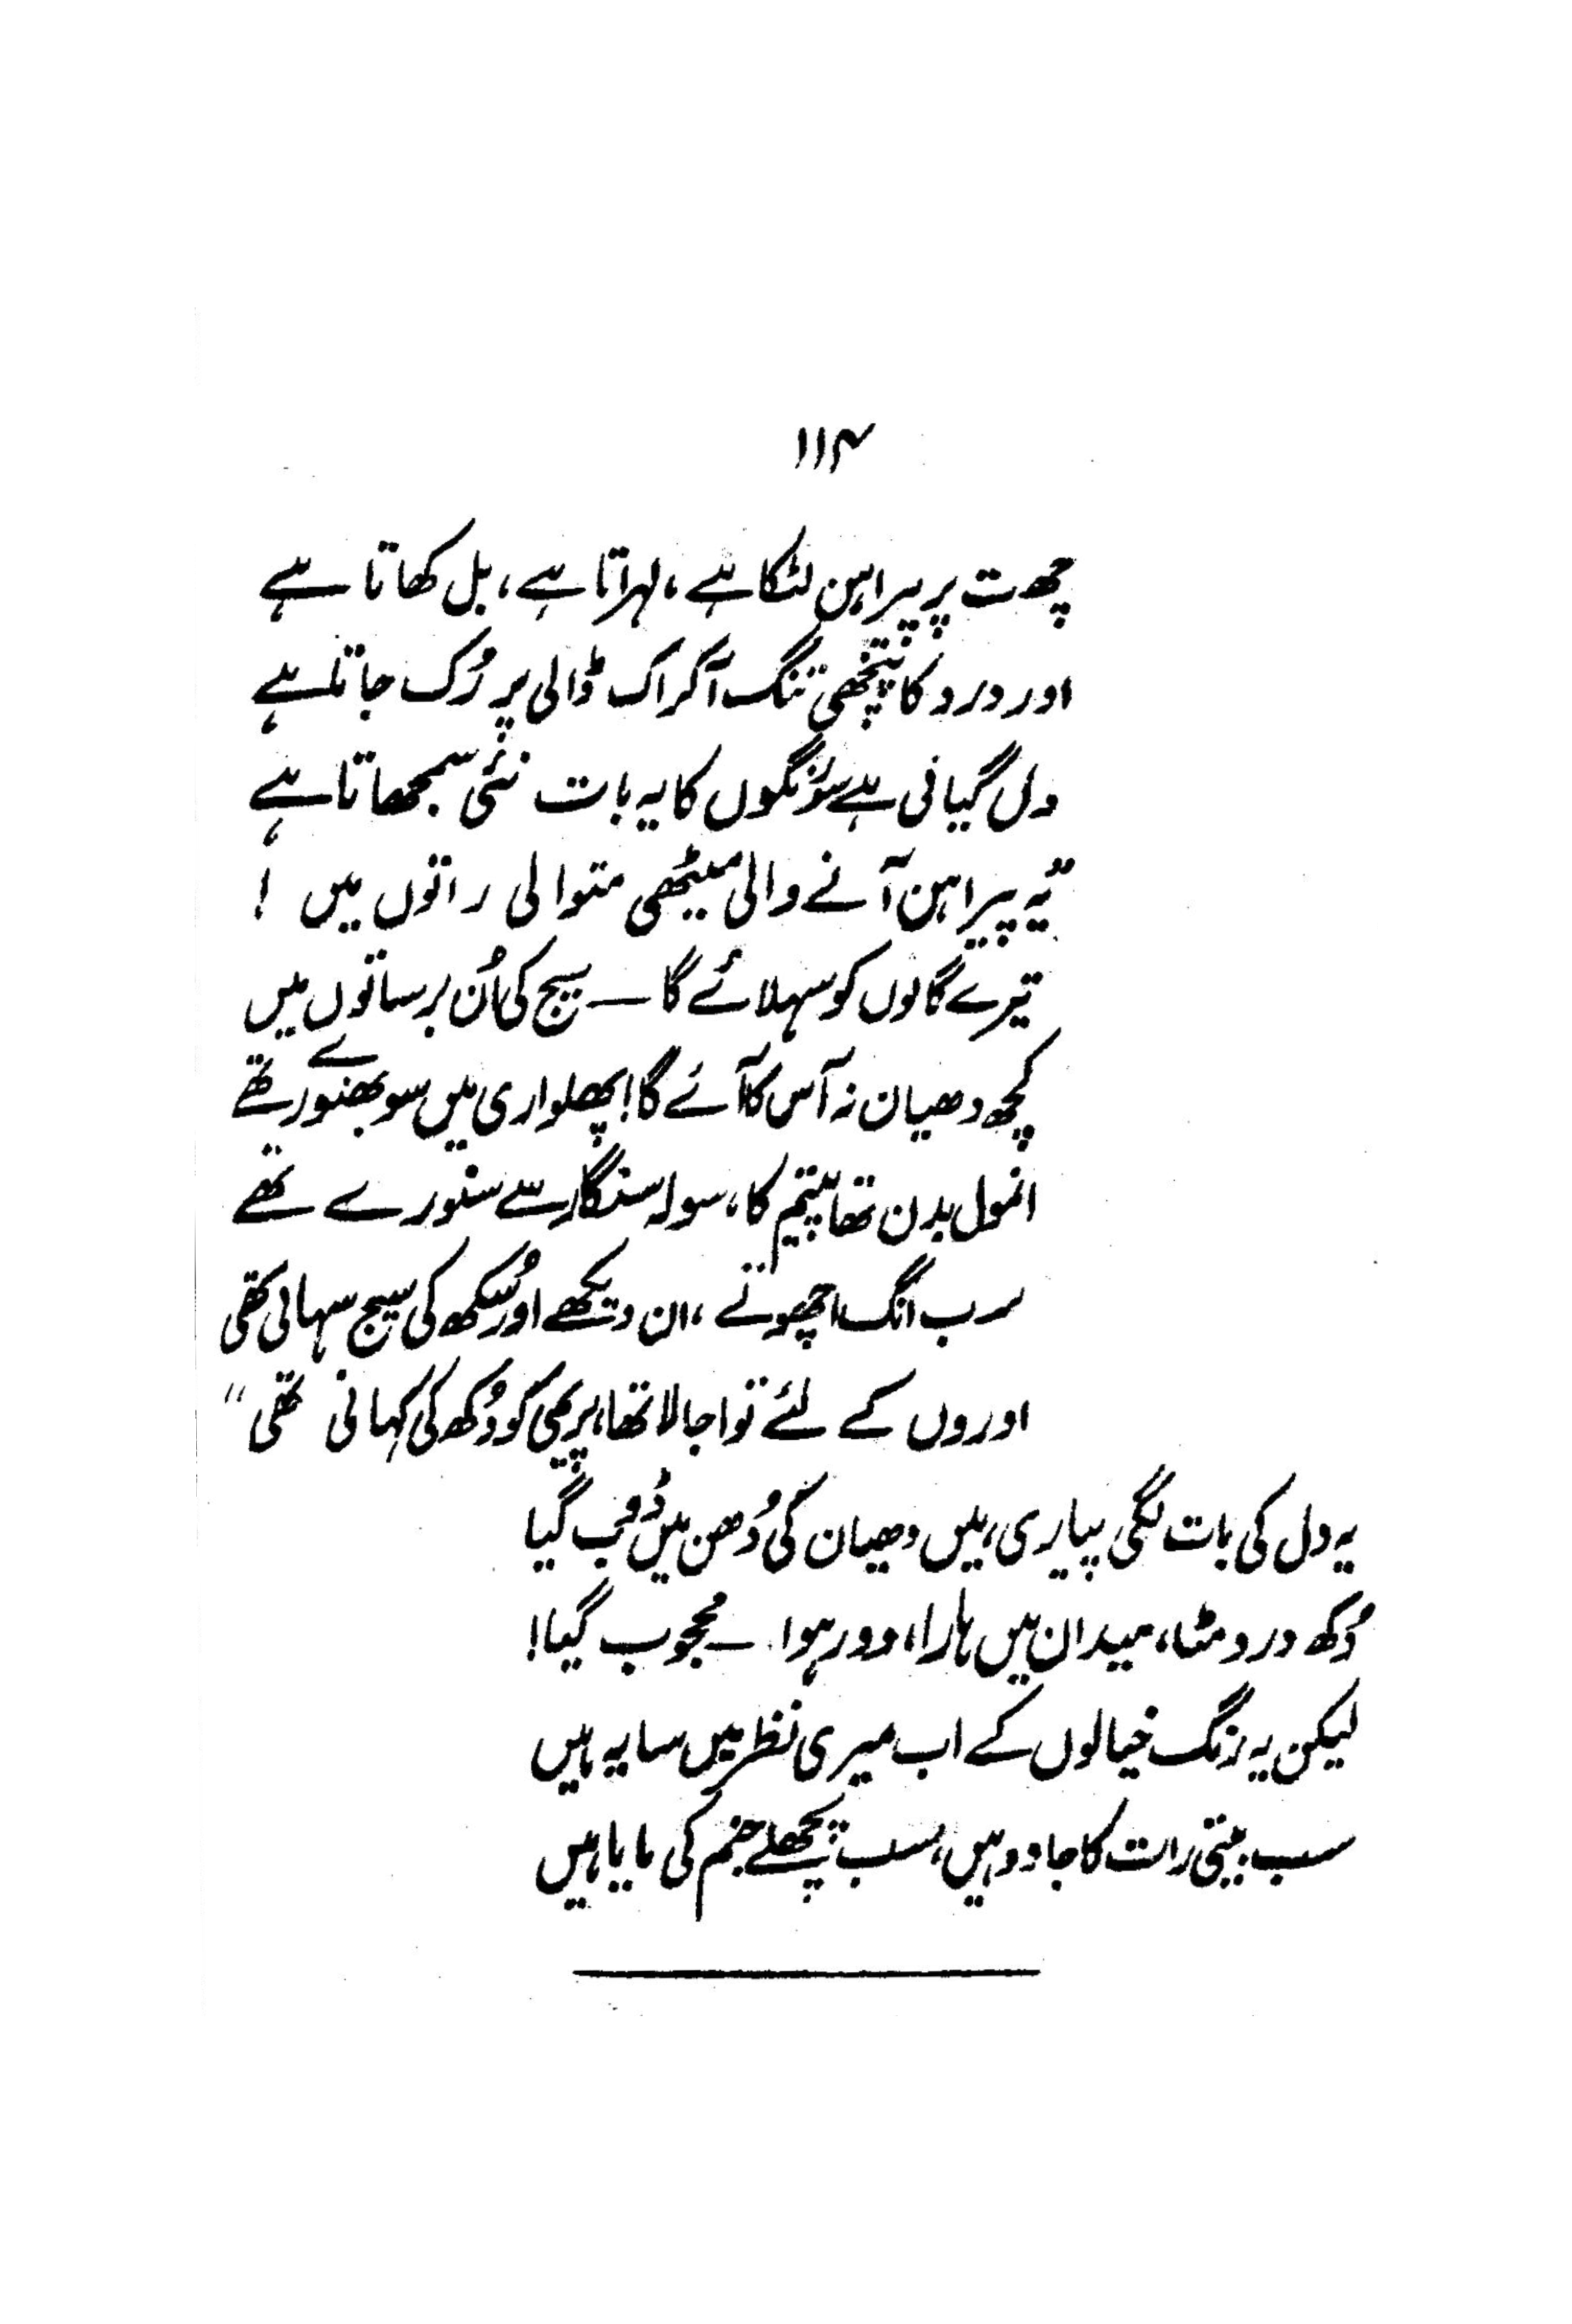 ۱۱۴
چھت پر پیراہن لٹکا ہے، لہراتا ہے، بل کھاتا ہے
اور درد کا پنچھی تنگ آ کر اک ڈالی پر رُک جاتا ہے
دل گیانی ہے سَو رنگوں کا یہ بات نئی سمجھاتا ہے
"یہ پیراہن آنے والی میٹھی متوالی راتوں میں !
تیرے گالوں کو سہلائے گا — سیج کی اُن برساتوں میں
کچھ دھیان نہ آس کا آئے گا! پھلواری میں سو بھنورے تھے
انمول بدن تھا پیتم کا، سولہ سنگار سے سنورے تھے
سرب انگ اچھوتے، ان دیکھے اور سُکھ کی سیج سہانی تھی
اوروں کے لئے تو اجالا تھا، پریمی کو دُکھ کی کہانی تھی"
یہ دل کی بات لگی پیاری، میں دھیان کی دُھن میں ڈوب گیا
دُکھ درد مٹا، میدان میں ہارا، دور ہوا — محجوب گیا!
لیکن یہ رنگ خیالوں کے اب میری نظر میں سایہ ہیں
سب بیتی رات کا جادو ہیں، سب پچھلے جنم کی مایا ہیں